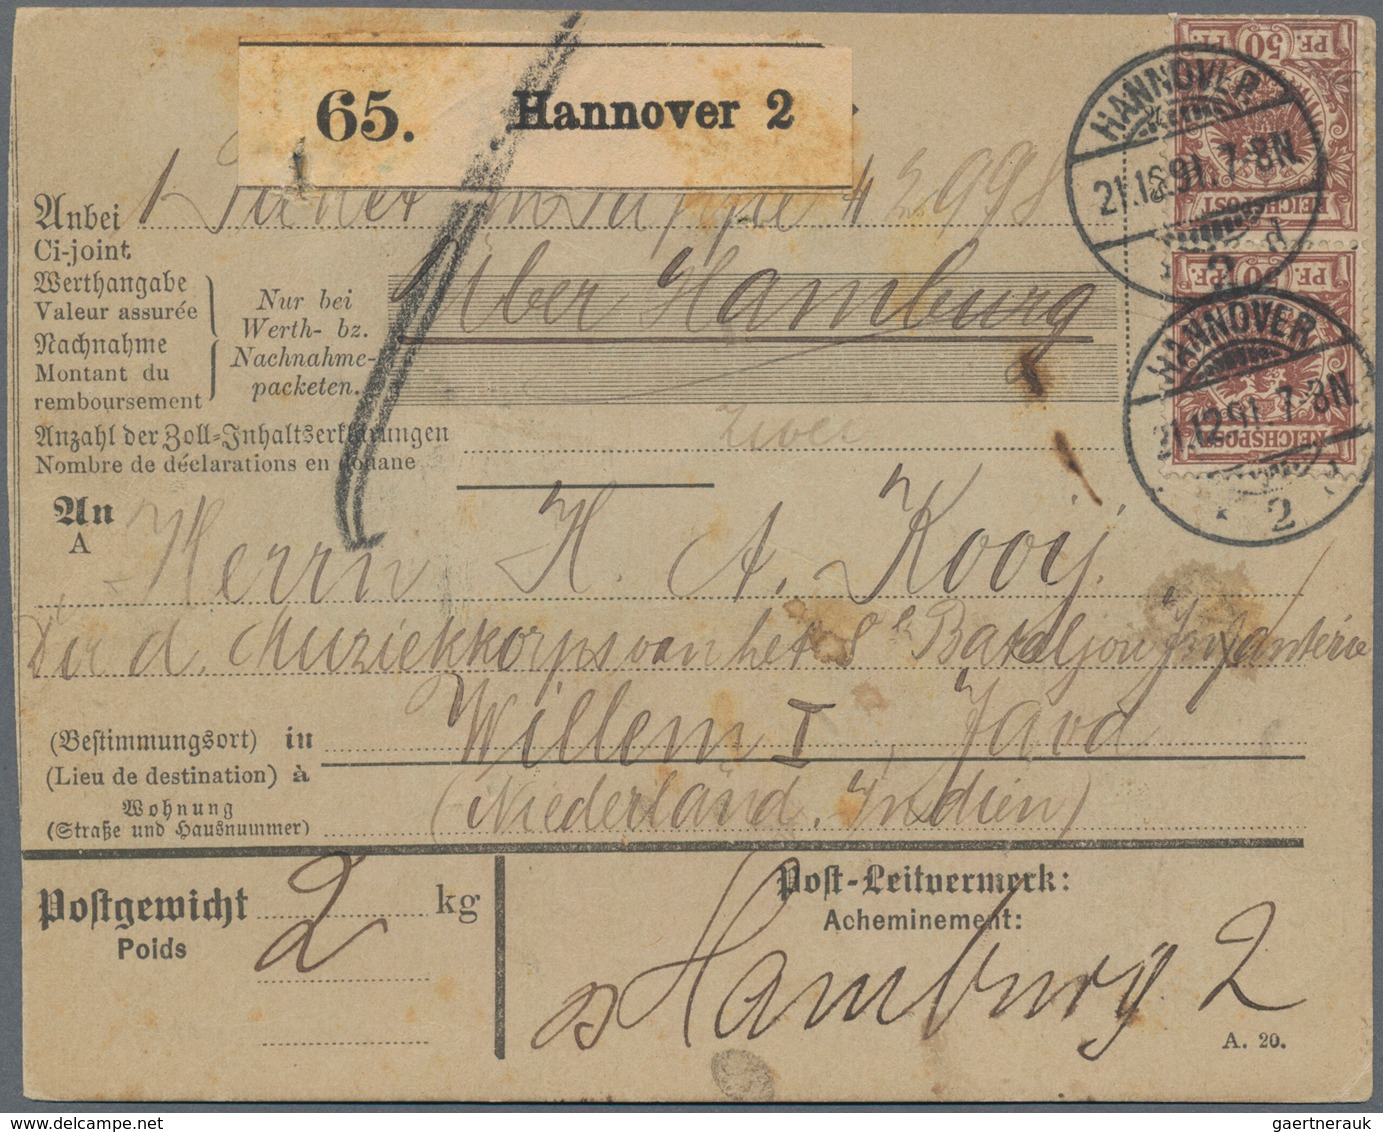 65. Hannover 2
PF. 50 PF.
REICHSPOST
HANNOVER
21.12.91. 7-8N.
2 d
Anbei 1 in 42998
Ci-joint
Werthangabe
Valeur assurée
Nachnahme
Montant du
remboursement
Nur bei
Werth- bz.
Nachnahme-
packeten.
Über Hamburg
PF. 50 PF.
REICHSPOST
HANNOVER
21.12.91. 7-8N
2
Anzahl der Zoll-Inhaltserklärungen
Nombre de déclarations en douane
zwei
An
A
Herrn H. A. Kooij.
Dir d. Muziekkorps van het 8e Bataljon Infanterie
(Bestimmungsort) in
(Lieu de destination) à
Willem I, Java
Wohnung
(Straße und Hausnummer)
(Niederländ. Indien)
Postgewicht 2 kg
Poids
Post-Leitvermerk:
Acheminement:
Hamburg 2
A. 20.
gaertnerauk